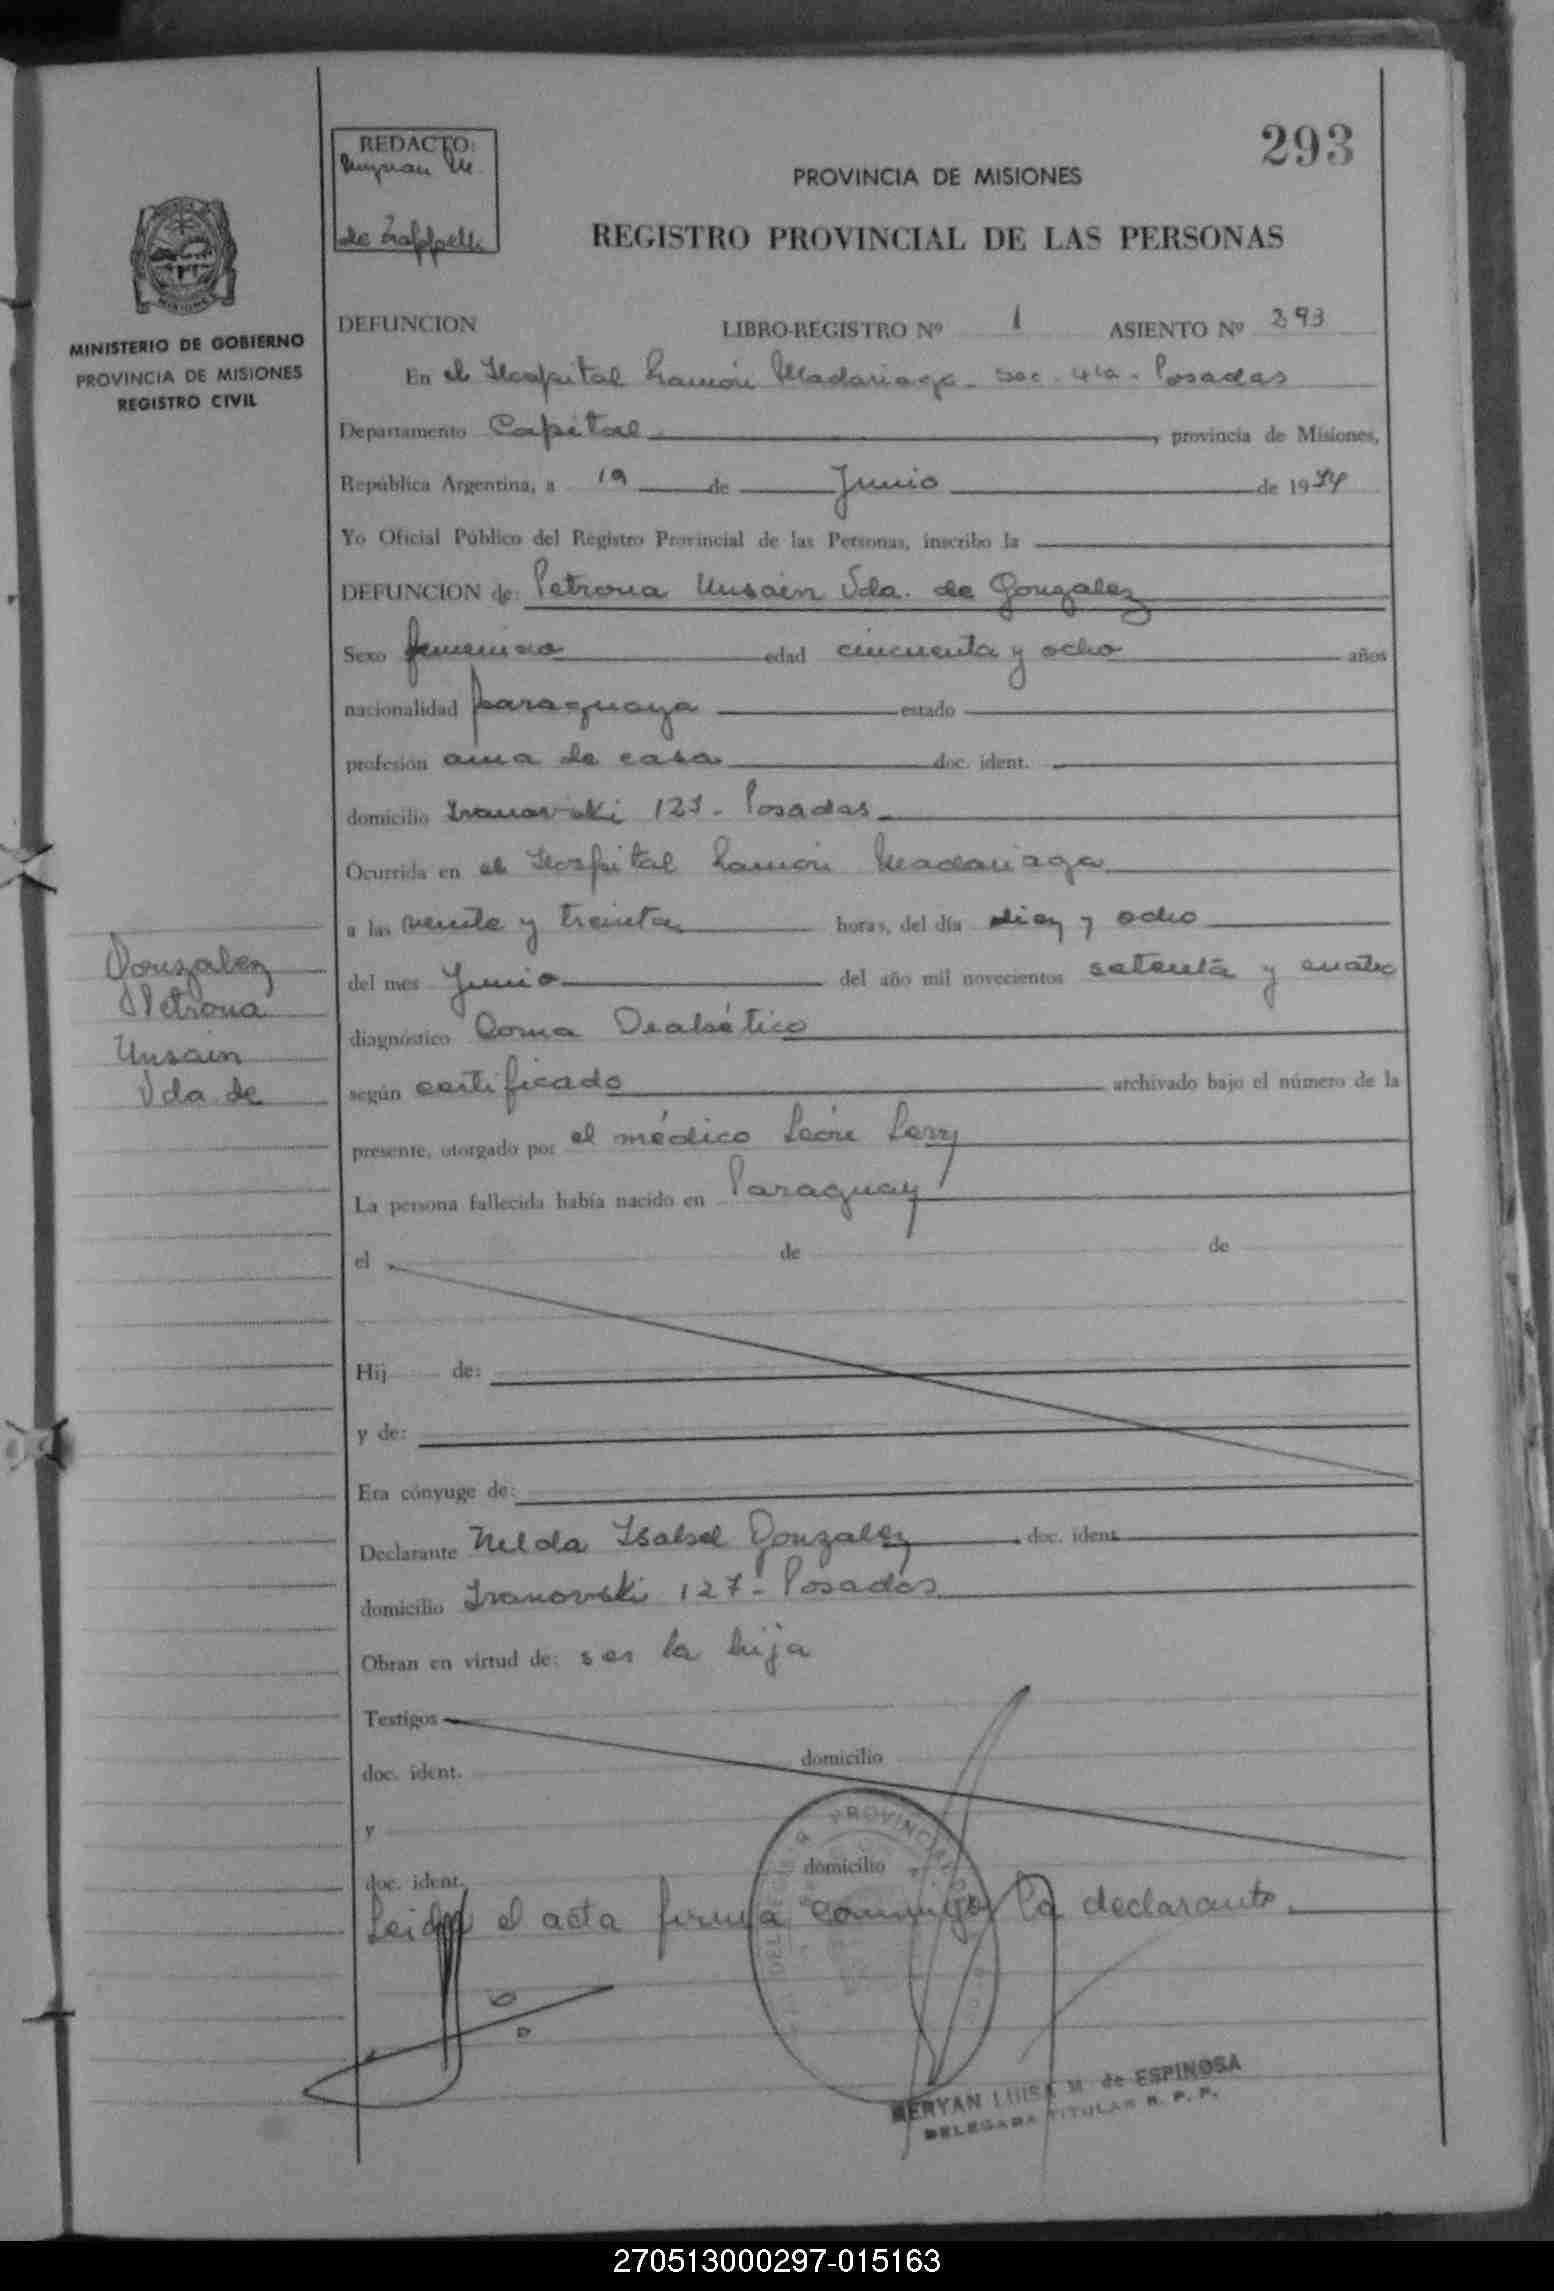 293
REDACTO:
Muyuan M.
de Zappelli
PROVINCIA DE MISIONES
REGISTRO PROVINCIAL DE LAS PERSONAS
MISIONES
MINISTERIO DE GOBIERNO
PROVINCIA DE MISIONES
REGISTRO CIVIL
DEFUNCION LIBRO-REGISTRO Nº 1 ASIENTO Nº 293
En el Hospital Ramón Madariaga - Sec. 4ta - Posadas
Departamento Capital, provincia de Misiones,
República Argentina, a 19 de Junio de 1974
Yo Oficial Público del Registro Provincial de las Personas, inscribo la
DEFUNCION de: Petrona Unsain Vda. de Gonzalez
Sexo femenino edad cincuenta y ocho años
nacionalidad paraguaya estado
profesión ama de casa doc. ident.
domicilio Ivanovski 127 - Posadas
Ocurrida en el Hospital Ramón Madariaga
a las veinte y treinta horas, del día diez y ocho
del mes Junio del año mil novecientos setenta y cuatro
diagnóstico Coma Diabético
según certificado archivado bajo el número de la
presente, otorgado por el médico León
La persona fallecida había nacido en Paraguay
el de de
Hij de:
y de:
Era cónyuge de:
Declarante Nelda Isabel Gonzalez doc. ident.
domicilio Ivanovski 127 - Posadas
Obran en virtud de: ser la hija
Testigos
doc. ident. domicilio
y
doc. ident. domicilio
Leida el acta firma conmigo la declarante
Gonzalez
Petrona
Unsain
Vda de
PROVINCIAL
MERYAN LUISA M. de ESPINOSA
DELEGADA TITULAR R. P. P.
270513000297-015163